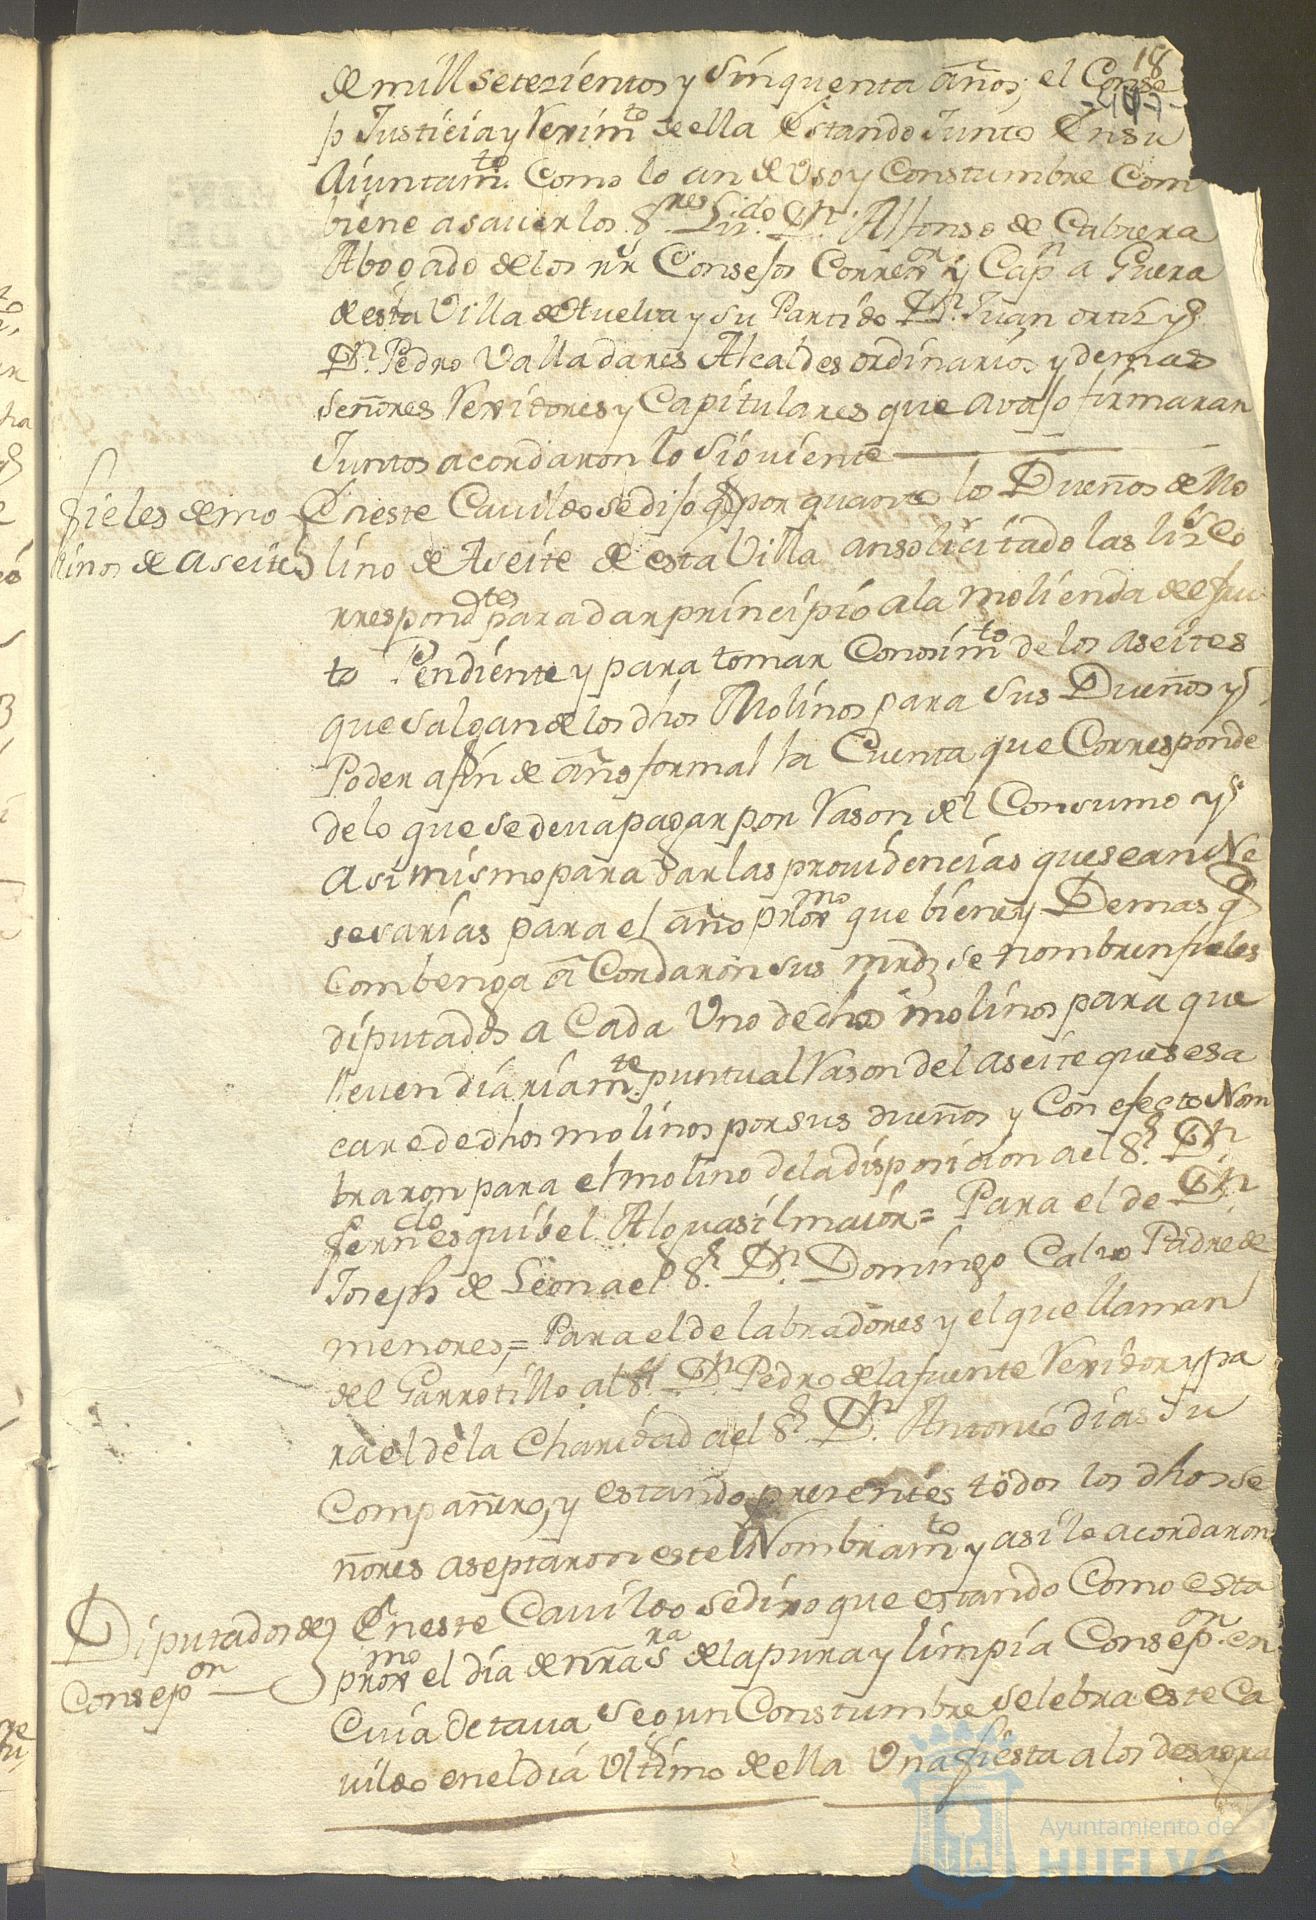 18
de mill setezientos y sinquenta años, el Conse
jo Justicia y Reximto de ella Estando Junto En su
Aiuntamto. Como lo an de Uso y Constumbre Com
biene a sauer los Sres. Lizdo. Dn. Alfonso de Cabrera
Abogado de los rrs Consejos Correxor y Capn a Guera
de esta Villa de Huelva y su Partido Dn. Juan ortiz y
Dn. Pedro Valladares Alcaldes ordinarios y demas
señores Rexidores y Capitulares que avajo firmaran
Juntos acordaron lo Siguiente
fieles de mo
linos de aseite
En este Cauildo se dijo qe por quanto los Dueños de Mo
lino de Aseite de esta Villa an solicitado las lizs Co
rrespondtes para dar principio a la molienda del fru
to Pendiente y para tomar Conosimto de los aseites
que salgan de los dhos Molinos para sus Dueños y
Poder a fin de año formal la Cuenta que Corresponde
de lo que se deua pagar por Rason del Consumo y
asi mismo para dar las prouidencias que sean Ne
sesarias para el año proxmo que biene y Demas q
Combenga a Cordaron sus mrds se nombren fieles
diputados a Cada Uno de dhos molinos para que
lleuen diariamte. puntual Rason del aseite que se sa
care de dhos molinos por sus dueños y Con efecto Nom
braron para el molino de la disposicion a el Sr. Dn.
ferndo esquibel Alguasil maior = Para el de Dn.
Joseph de Leon a el Sr. Dn. Domingo Calvo Padre de
menores, = Para el de labradores y el que llaman
del Garrotillo al Sr. Dn. Pedro de la fuente Rexidor y pa
ra el de la Charidad a el Sr. Dn. Antonio dias su
Compañero, y estando presentes todos los dhos se
ñores aseptaron este Nombramto y asi lo acordaron
Diputados de
Consepon
En este Cauildo se dixo que estando Como esta
proxmo el dia de nra Sra de la pura y limpia Consepon. en
Cuia Octaua Segun Constumbre selebra este Ca
uildo en el dia Ultimo de ella Una fiesta a los desagra
Ayuntamiento de
HUELVA